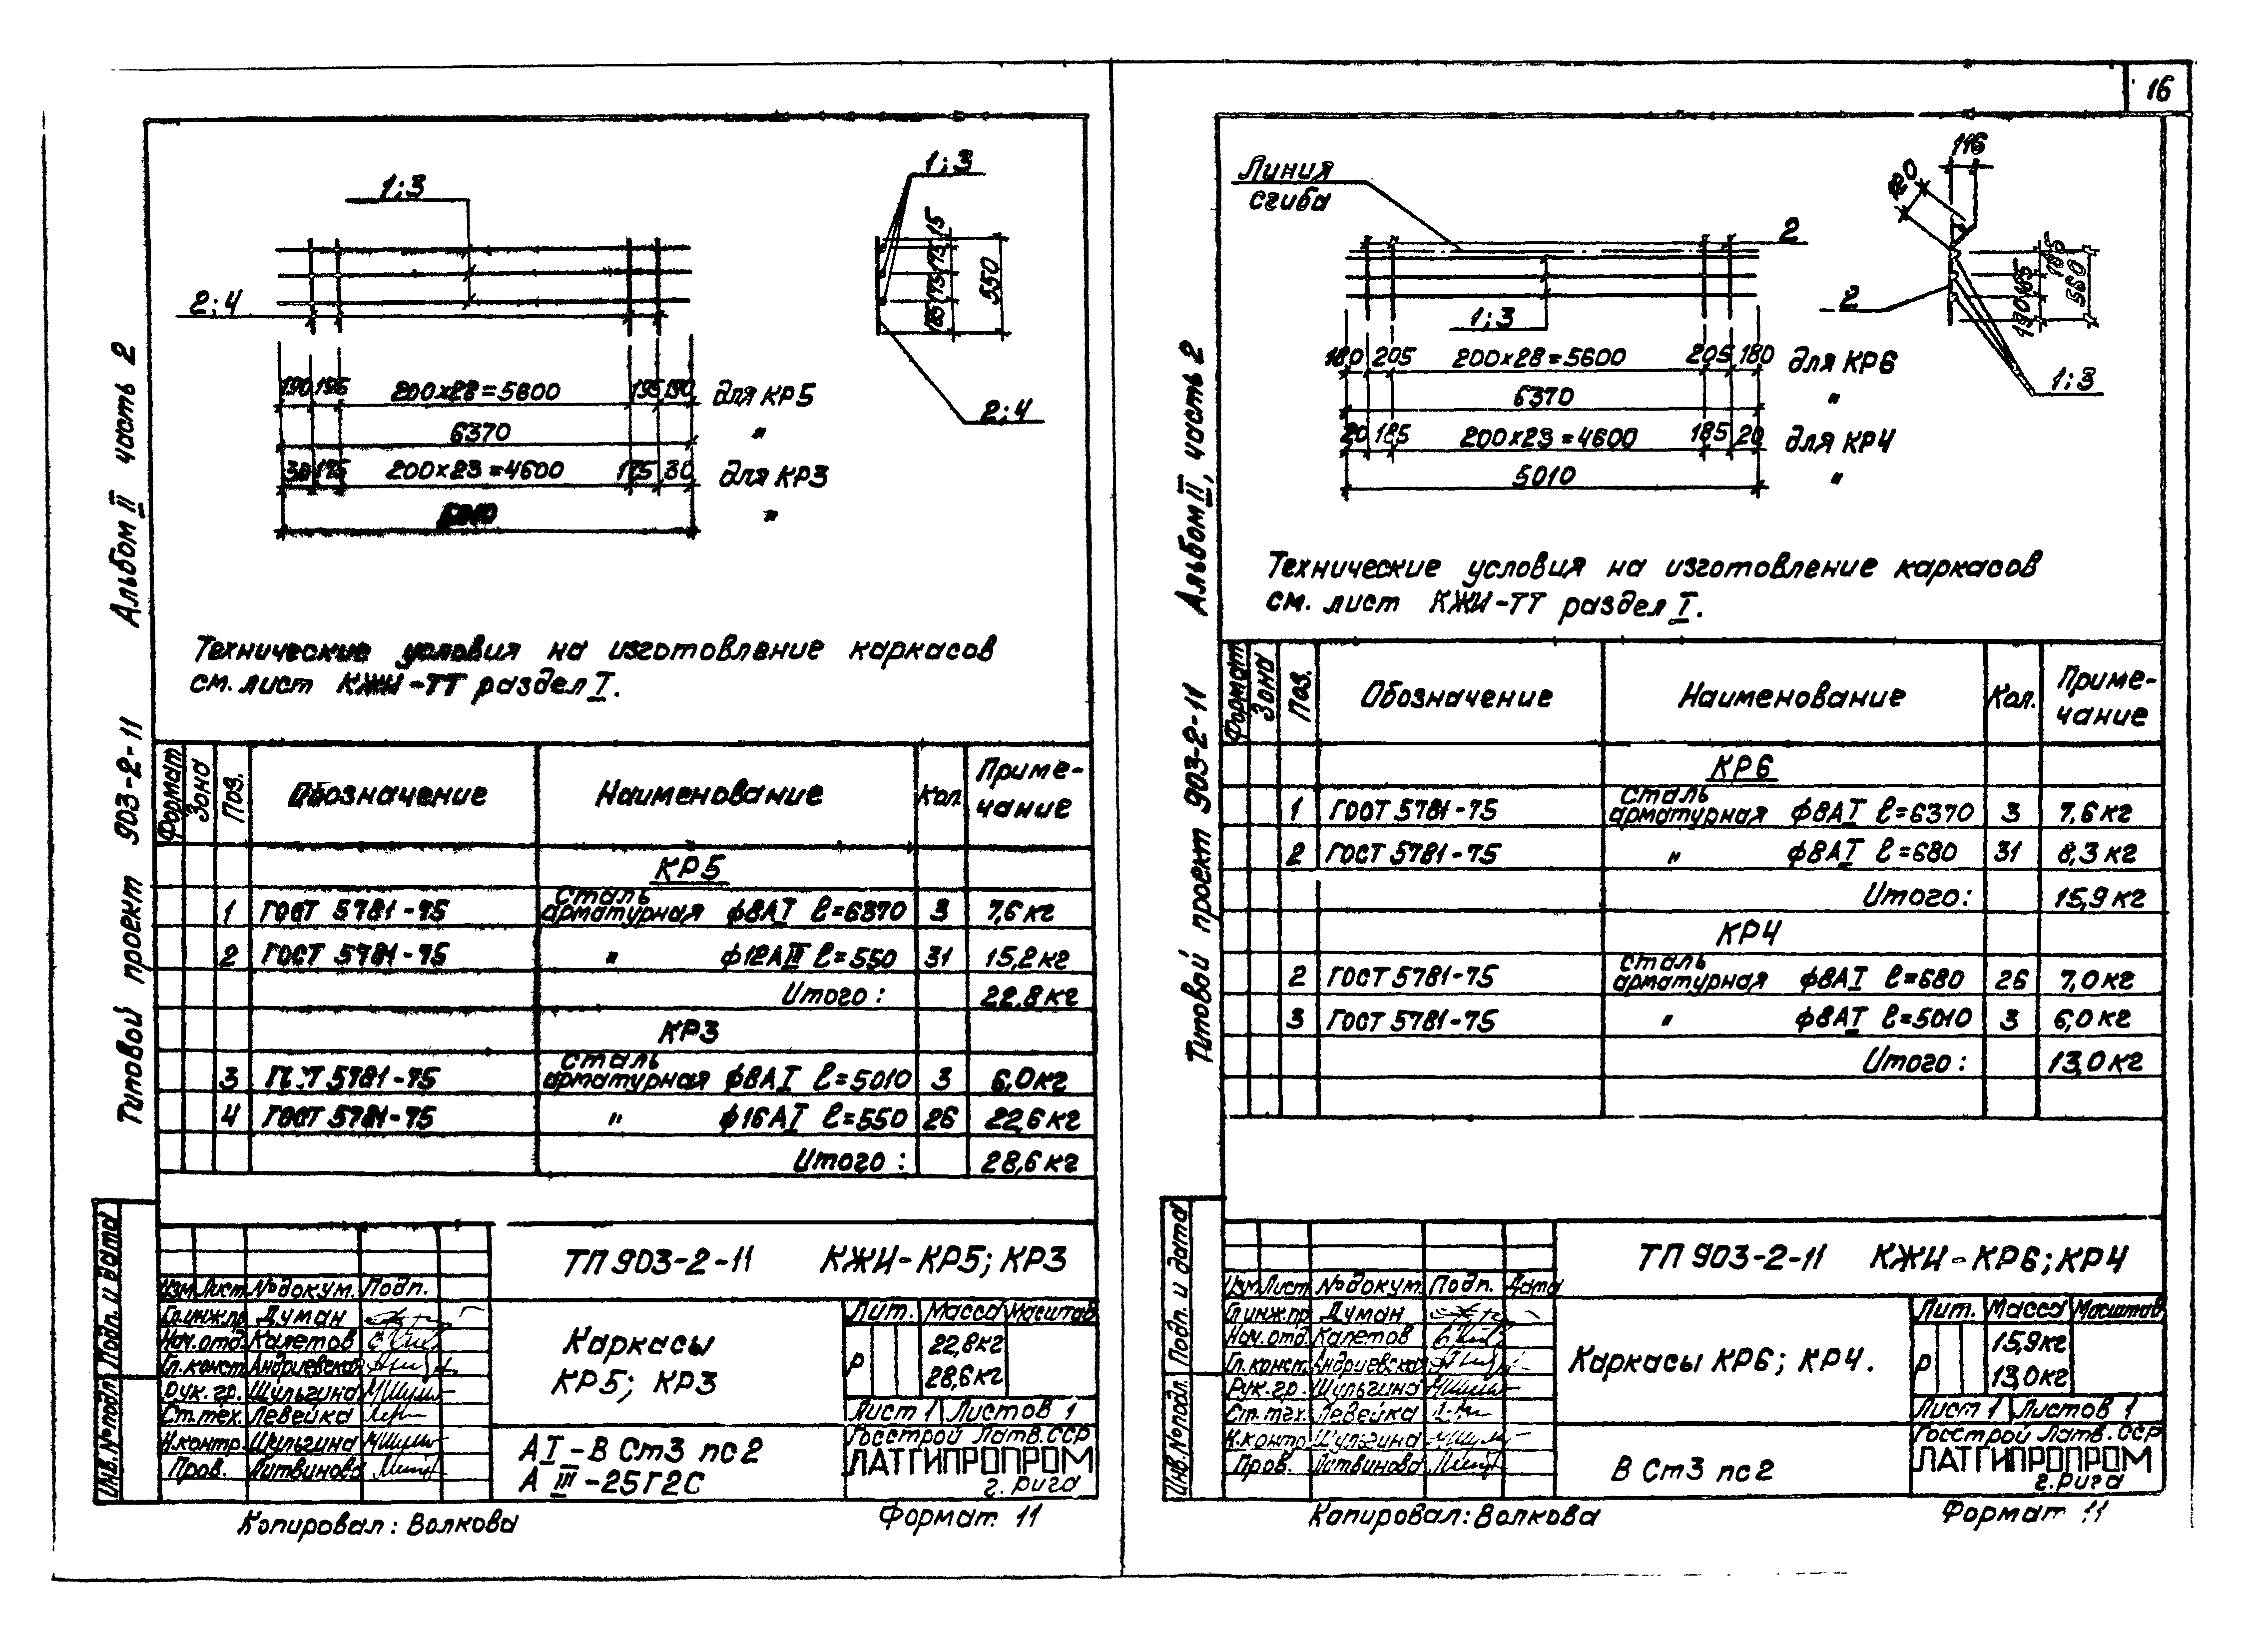 16
Альбом II часть 2
Типовой проект 903-2-11
1;3
1;3
2;4
15 175 175 185
550
2;4
190 195 200х28=5600 195 190 для КР5
6370 "
30 175 200х23=4600 175 30 для КР3
"
Технические условия на изготовление каркасов
см. лист КЖИ-ТТ раздел I.
Формат Зона Поз. Обозначение Наименование Кол. Приме-
чание
КР5
1 ГОСТ 5781-75 сталь арматурная ф8АI ℓ=6370 3 7,6кг
2 ГОСТ 5781-75 " ф12АIII ℓ=550 31 15,2кг
Итого: 22.8кг
КР3
3 ГОСТ 5781-75 сталь арматурная ф8АI ℓ=5010 3 6,0кг
4 ГОСТ 5781-75 " ф16АI ℓ=550 26 22,6кг
Итого: 28,6кг
Инв.№подл. Подп. и дата
ТП 903-2-11 КЖИ-КР5; КР3
Изм Лист №докум. Подп.
Гл.инж.пр. Думан
Нач.отд. Калетов
Гл.конст. Андриевская
Рук.гр. Шульгина
Ст.тех. Левейка
Н.контр. Шульгина
Пров. Литвинова
Каркасы
КР5; КР3
Лит. Масса Масштаб
Р 22,8кг
28,6кг
Лист 1 Листов 1
АI-В Ст3 пс2
А III-25Г2С
Госстрой Латв.ССР
ЛАТГИПРОПРОМ
г. Рига
Копировал: Волкова Формат 11
Альбом II, часть 2
Типовой проект 903-2-11
Линия
сгиба
2
1;3
116
2
185 185 190
560
1;3
180 205 200х28=5600 205 180 для КР6
6370 "
20 185 200х23=4600 185 20 для КР4
5010 "
Технические условия на изготовление каркасов
см. лист КЖИ-ТТ раздел I.
Формат Зона Поз. Обозначение Наименование Кол. Приме-
чание
КР6
1 ГОСТ 5781-75 сталь арматурная ф8АI ℓ=6370 3 7,6кг
2 ГОСТ 5781-75 " ф8АI ℓ=680 31 8,3кг
Итого: 15,9кг
КР4
2 ГОСТ 5781-75 сталь арматурная ф8АI ℓ=680 26 7,0кг
3 ГОСТ 5781-75 " ф8АI ℓ=5010 3 6,0кг
Итого: 13,0кг
Инв.№подл. Подп. и дата
ТП 903-2-11 КЖИ-КР6; КР4
Изм Лист №докум. Подп. Дата
Гл.инж.пр. Думан
Нач.отд. Калетов
Гл.конст. Андриевская
Рук.гр. Шульгина
Ст.тех. Левейка
Н.контр. Шульгина
Пров. Литвинова
Каркасы КР6; КР4.
Лит. Масса Масштаб
Р 15,9кг
13,0кг
Лист 1 Листов 1
В Ст3 пс2
Госстрой Латв. ССР
ЛАТГИПРОПРОМ
г. Рига
Копировал: Волкова Формат 11